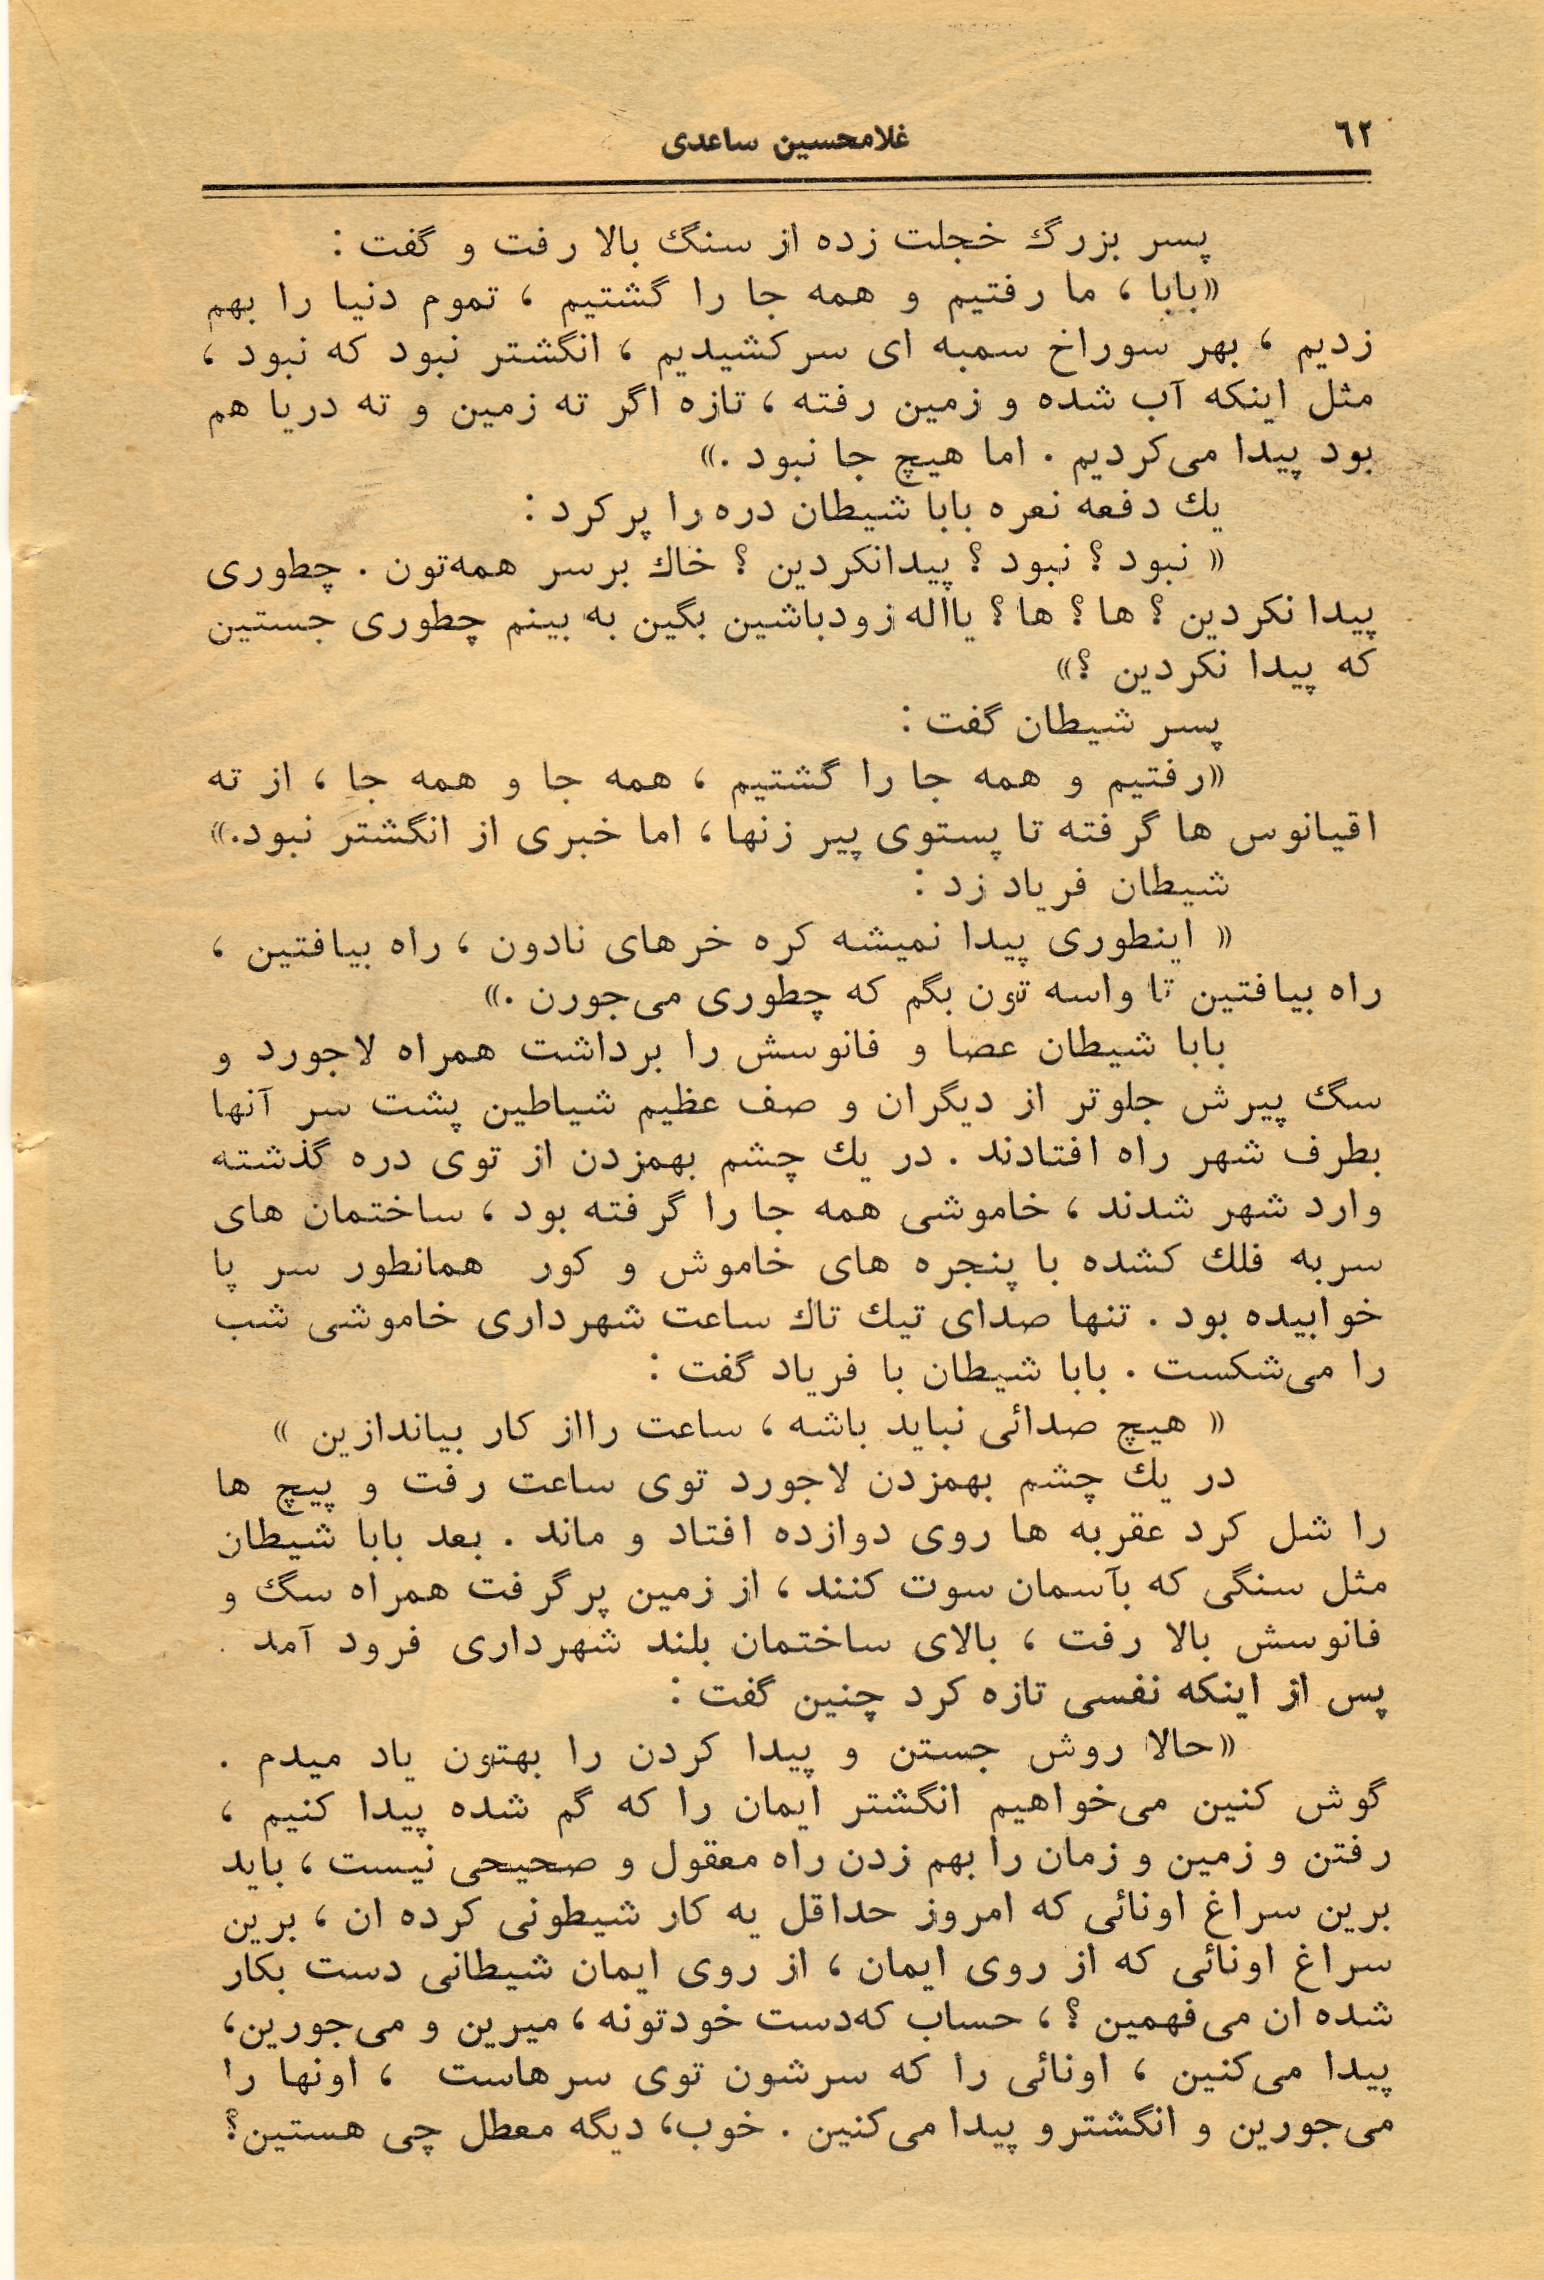 ٦٢
غلامحسین ساعدی
پسر بزرگ خجلت زده از سنگ بالا رفت و گفت :
«بابا ، ما رفتیم و همه جا را گشتیم ، تموم دنیا را بهم
زدیم ، بهر سوراخ سمبه ای سرکشیدیم ، انگشتر نبود که نبود ،
مثل اینکه آب شده و زمین رفته ، تازه اگر ته زمین و ته دریا هم
بود پیدا می‌کردیم . اما هیچ جا نبود .»
یك دفعه نعره بابا شیطان دره را پر کرد :
« نبود ؟ نبود ؟ پیدانکردین ؟ خاك برسر همه‌تون . چطوری
پیدا نکردین ؟ ها ؟ ها ؟ یااله زودباشین بگین به بینم چطوری جستین
که پیدا نکردین ؟»
پسر شیطان گفت :
«رفتیم و همه جا را گشتیم ، همه جا و همه جا ، از ته
اقیانوس ها گرفته تا پستوی پیر زنها ، اما خبری از انگشتر نبود.»
شیطان فریاد زد :
« اینطوری پیدا نمیشه کره خرهای نادون ، راه بیافتین ،
راه بیافتین تا واسه تون بگم که چطوری می‌جورن .»
بابا شیطان عصا و فانوسش را برداشت همراه لاجورد و
سگ پیرش جلوتر از دیگران و صف عظیم شیاطین پشت سر آنها
بطرف شهر راه افتادند . در یك چشم بهمزدن از توی دره گذشته
وارد شهر شدند ، خاموشی همه جا را گرفته بود ، ساختمان های
سربه فلك کشده با پنجره های خاموش و کور همانطور سر پا
خوابیده بود . تنها صدای تیك تاك ساعت شهرداری خاموشی شب
را می‌شکست . بابا شیطان با فریاد گفت :
« هیچ صدائی نباید باشه ، ساعت رااز کار بیاندازین »
در یك چشم بهمزدن لاجورد توی ساعت رفت و پیچ ها
را شل کرد عقربه ها روی دوازده افتاد و ماند . بعد بابا شیطان
مثل سنگی که بآسمان سوت کنند ، از زمین پرگرفت همراه سگ و
فانوسش بالا رفت ، بالای ساختمان بلند شهرداری فرود آمد .
پس از اینکه نفسی تازه کرد چنین گفت :
«حالا روش جستن و پیدا کردن را بهتون یاد میدم .
گوش کنین می‌خواهیم انگشتر ایمان را که گم شده پیدا کنیم ،
رفتن و زمین و زمان را بهم زدن راه معقول و صحیحی نیست ، باید
برین سراغ اونائی که امروز حداقل یه کار شیطونی کرده ان ، برین
سراغ اونائی که از روی ایمان ، از روی ایمان شیطانی دست بکار
شده ان می‌فهمین ؟ ، حساب که‌دست خودتونه ، میرین و می‌جورین،
پیدا می‌کنین ، اونائی را که سرشون توی سرهاست ، اونها را
می‌جورین و انگشترو پیدا می‌کنین . خوب، دیگه معطل چی هستین؟